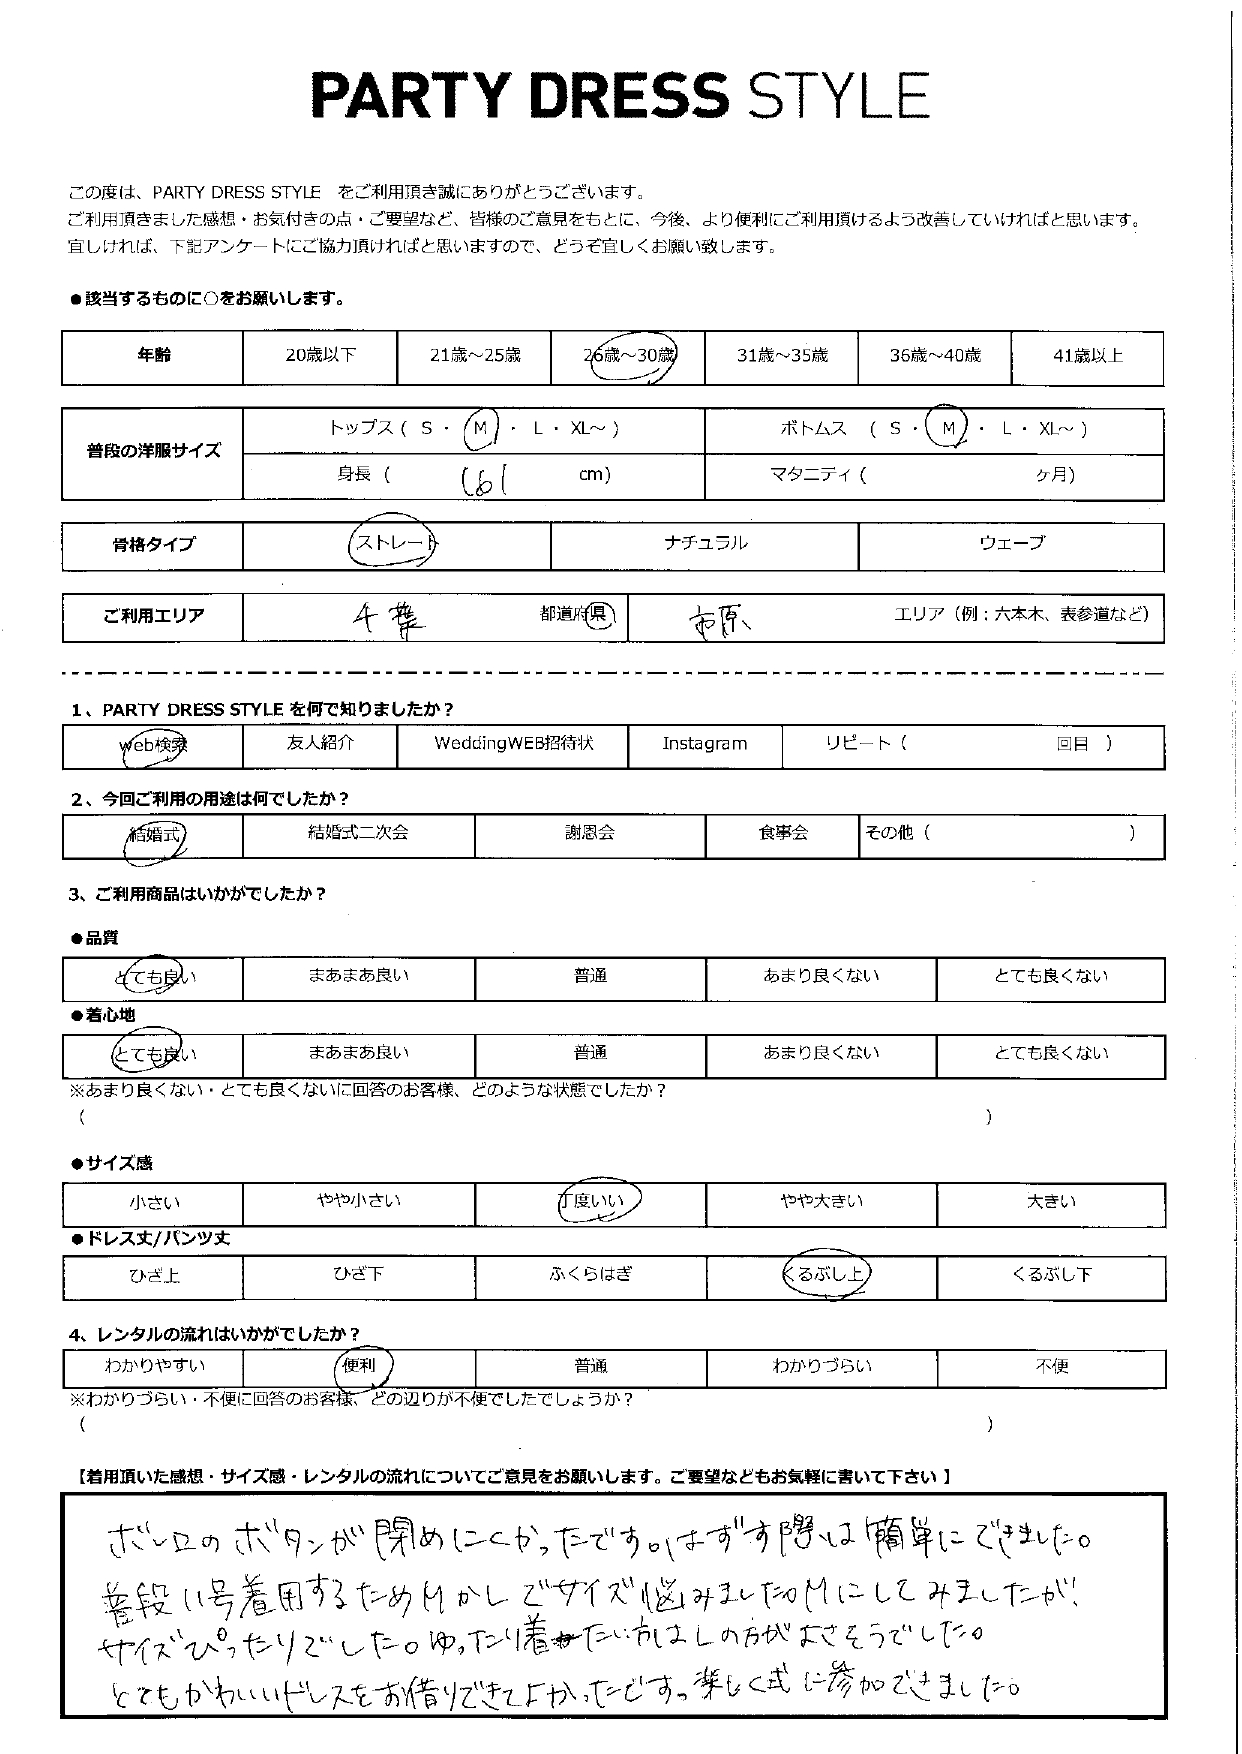 PARTY DRESS STYLE
この度は、PARTY DRESS STYLE をご利用頂き誠にありがとうございます。
ご利用頂きました感想・お気付きの点・ご要望など、皆様のご意見をもとに、今後、より便利にご利用頂けるよう改善していければと思います。
宜しければ、下記アンケートにご協力頂ければと思いますので、どうぞ宜しくお願い致します。
●該当するものに○をお願いします。
年齢 20歳以下 21歳～25歳 26歳～30歳 31歳～35歳 36歳～40歳 41歳以上
普段の洋服サイズ トップス ( S ・ M ・ L ・ XL～ ) ボトムス ( S ・ M ・ L ・ XL～ )
身長 ( 161 cm) マタニティ ( ヶ月)
骨格タイプ ストレート ナチュラル ウェーブ
ご利用エリア 千葉 都道府県 市原 エリア（例：六本木、表参道など）
1、PARTY DRESS STYLE を何で知りましたか？
web検索 友人紹介 WeddingWEB招待状 Instagram リピート ( 回目 )
2、今回ご利用の用途は何でしたか？
結婚式 結婚式二次会 謝恩会 食事会 その他 ( )
3、ご利用商品はいかがでしたか？
●品質
とても良い まあまあ良い 普通 あまり良くない とても良くない
●着心地
とても良い まあまあ良い 普通 あまり良くない とても良くない
※あまり良くない・とても良くないに回答のお客様、どのような状態でしたか？
( )
●サイズ感
小さい やや小さい 丁度いい やや大きい 大きい
●ドレス丈/パンツ丈
ひざ上 ひざ下 ふくらはぎ くるぶし上 くるぶし下
4、レンタルの流れはいかがでしたか？
わかりやすい 便利 普通 わかりづらい 不便
※わかりづらい・不便に回答のお客様、どの辺りが不便でしたでしょうか？
( )
【着用頂いた感想・サイズ感・レンタルの流れについてご意見をお願いします。ご要望などもお気軽に書いて下さい】
ボレロのボタンが閉めにくかったです。はずす際は簡単にできました。
普段11号着用するためMかLでサイズ悩みました。Mにしてみましたが、
サイズぴったりでした。ゆったり着たい方はLの方がよさそうでした。
とてもかわいいドレスをお借りできてよかったです。楽しく式に参加できました。